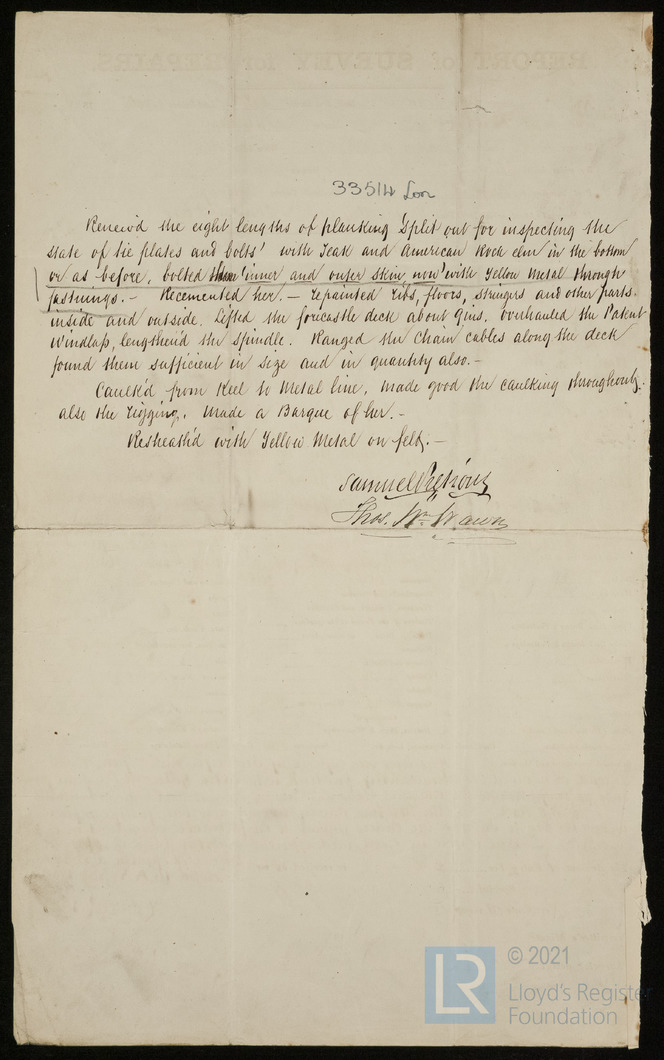 33514 Lon
Renew'd the eight lengths of planking 'split out for inspecting the
state of tie plates and bolts' with Teak and American Rock elm in the bottom
or as before, bolted 'inner and outer skin now' with Yellow Metal through
fastnings. — Recemented her. — repainted ribs, floors, stringers and other parts
inside and outside. Lifted the forecastle deck about 9 ins. Overhauled the Patent
Windlass, lengthen'd the spindle. Ranged the Chain cables along the deck
found them sufficient in size and in quantity also. —
Caulk'd from Keel to Metal line, made good the caulking throughout,
also the rigging. Made a Barque of her. —
Resheath'd with Yellow Metal on felt. —
Samuel
Thos. Wm. Wawn
REPORT of SURVEY for REPAIRS
LR
© 2021
Lloyd's Register
Foundation